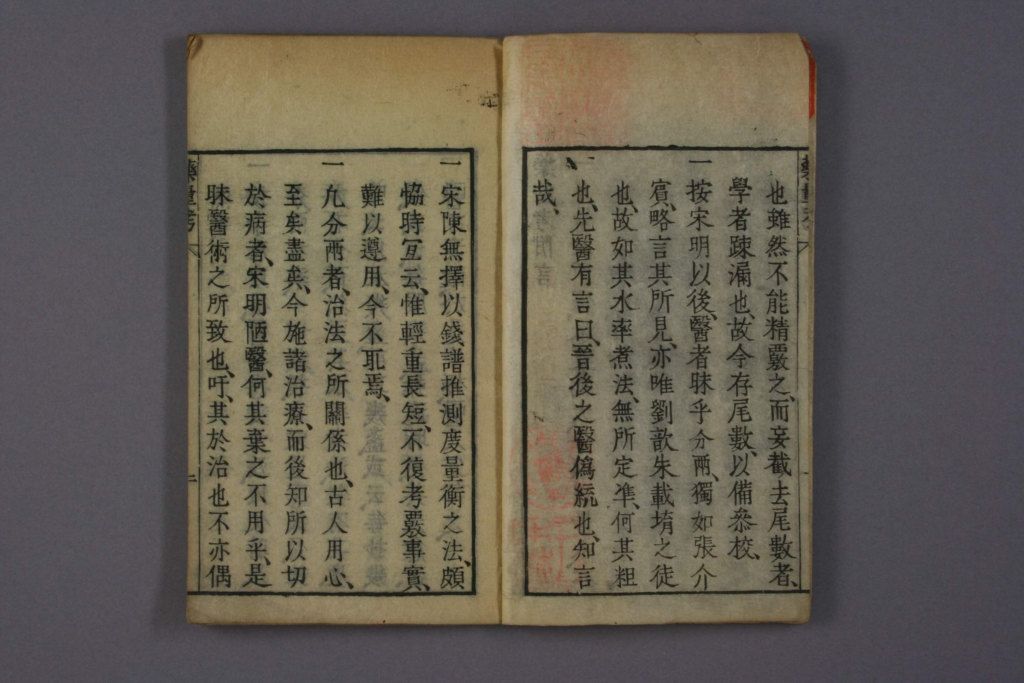 也雖然不能精覈之、而妄截去尾數者、
學者踈漏也、故今存尾數、以備叅校、
一按宋明以後、醫者眛乎分兩、獨如張介
賓、略言其所見、亦唯劉歆朱載堉之徒
也、故如其水率煮法、無所定準、何其粗
也、先醫有言曰、晉後之醫僞統也、知言
哉、
一宋陳無擇以錢譜推測度量衡之法、頗
恊時宜云、惟輕重長短、不復考覈事實、
難以遵用、今不取焉、
一凢分兩者、治法之所關係也、古人用心、
至矣盡矣、今施諸治療、而後知所以切
於病者、宋明陋醫、何其棄之不用乎、是
眛醫術之所致也、吁、其於治也不亦偶
藥量考
二